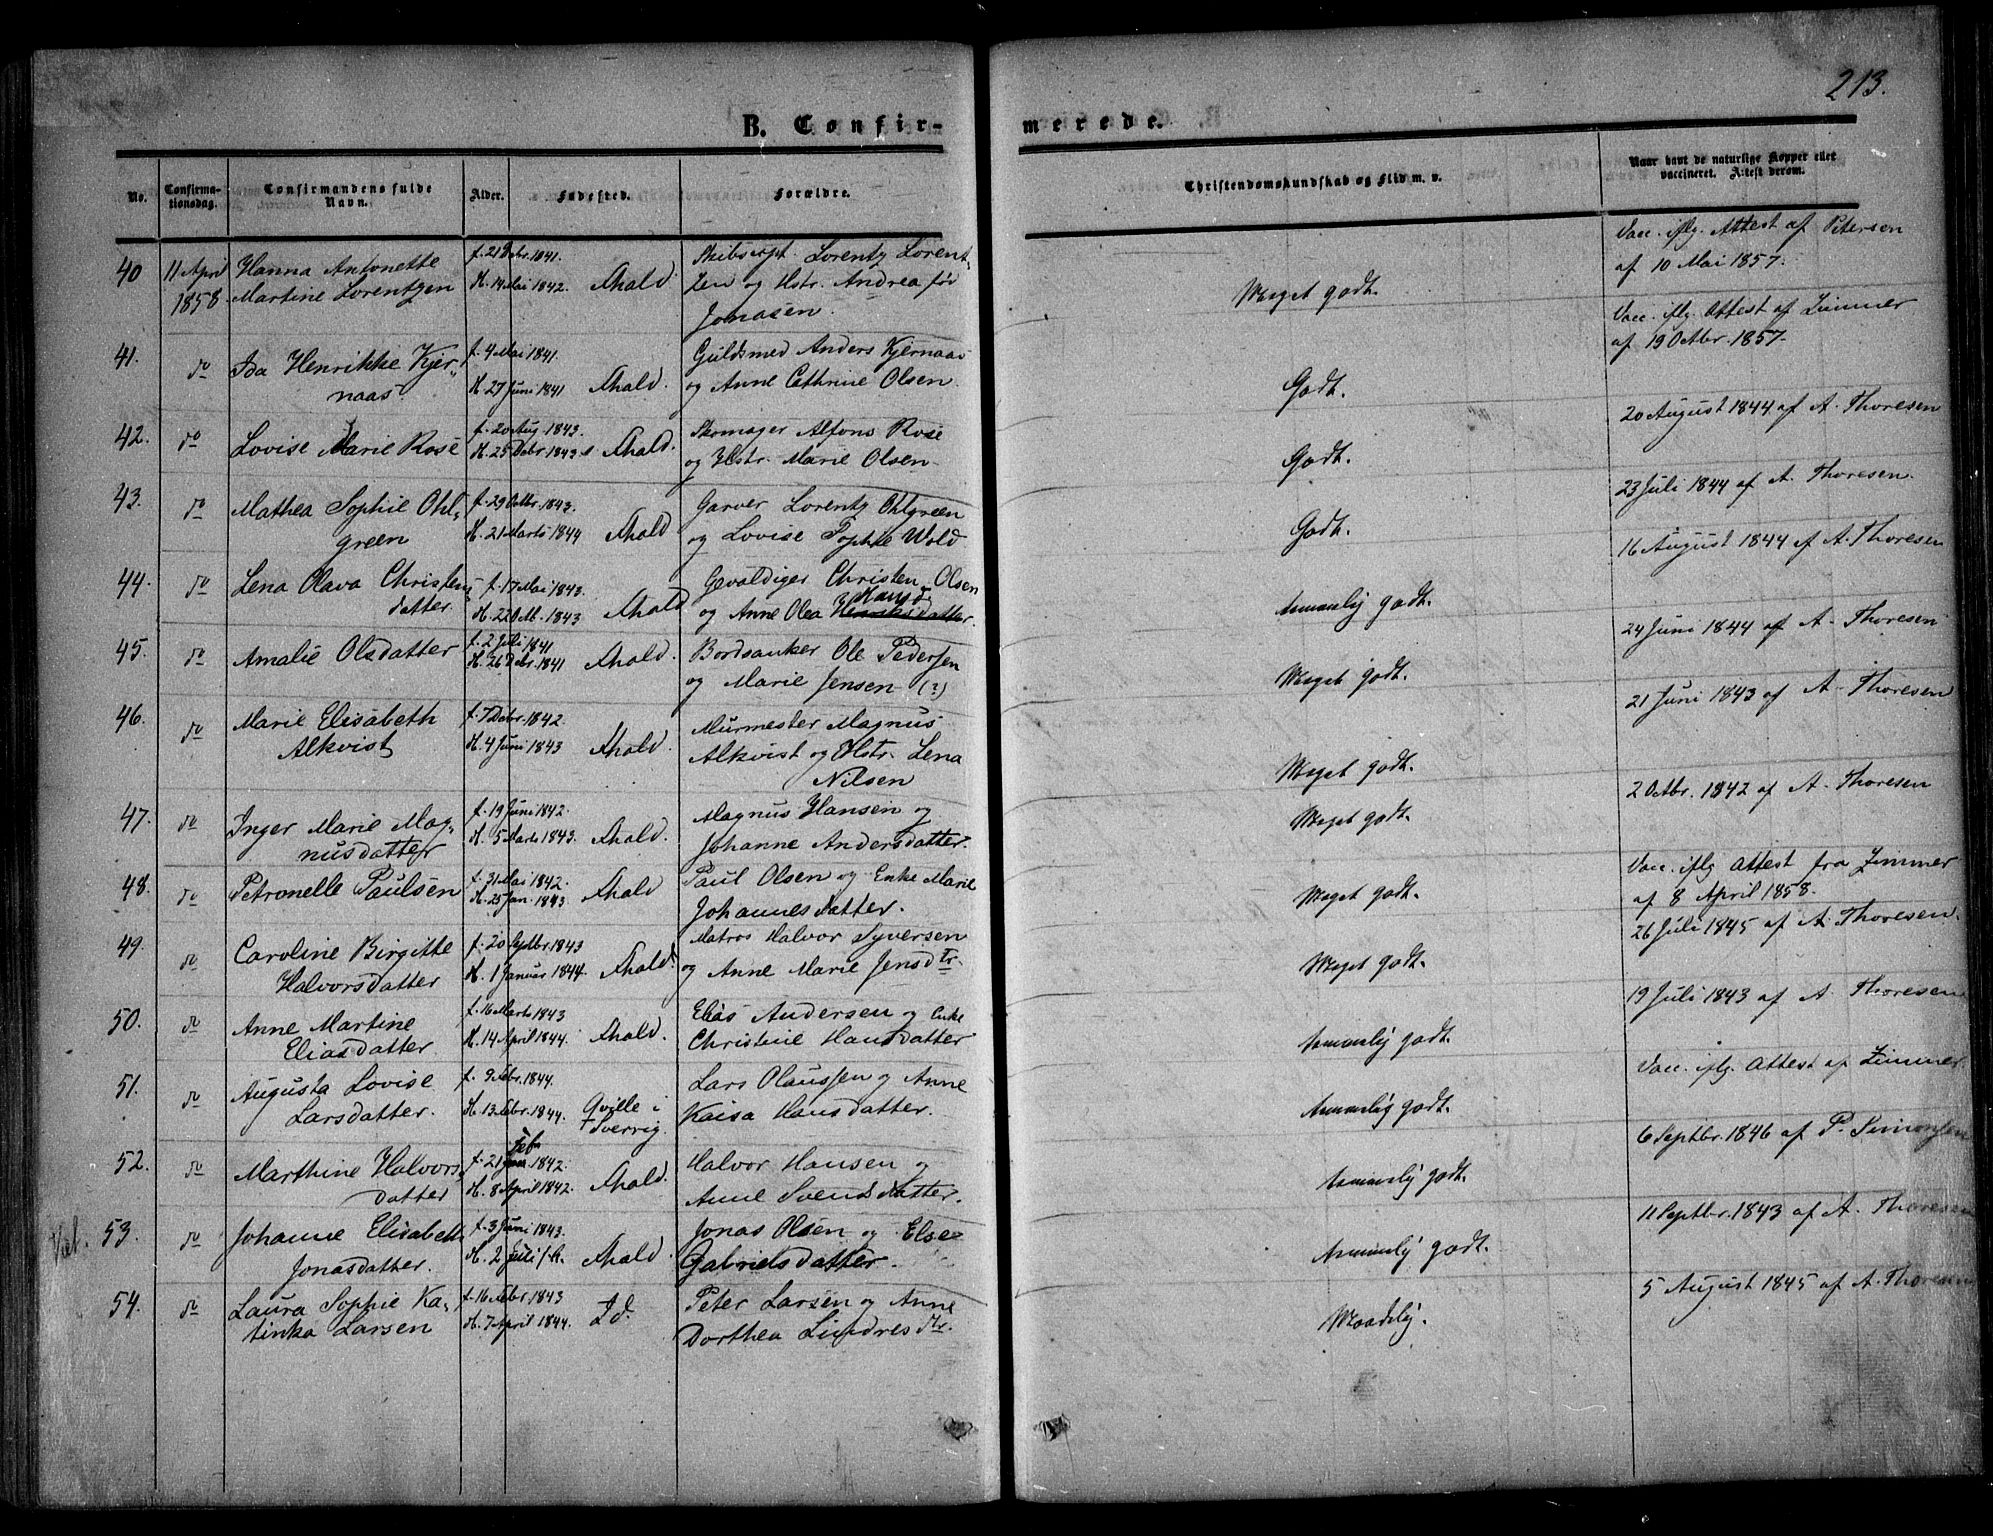 213.
B. Confir-
merede.
No.
Confirma-
tionsdag.
Confirmandens fulde
Navn.
Alder.
Fødested.
Forældre.
Christendomskundskab og Flid m. v.
Naar havt de naturlige Kopper eller
vaccineret. Attest derom.
40 11 April 1858. Hanna Antonette
Martine Lorentzen
f. 21 Debr. 1841.
H. 14 Mai 1842. Fhald.
Skibscapt. Lorentz Lorent-
zen og Hstr. Andrea før
Jonasen.
Meget godt.
Vacc. iflg. Attest af Petersen
af 10 Mai 1857.
41. do Ida Henrikke Kjer-
naas.
f. 4 Mai 1841.
H. 27 Juni 1841 Fhald.
Guldsmed Anders Kjernaas
og Anne Cathrine Olsen.
Godt.
Vacc. iflg. Attest af Zimmer
af 19 Octbr. 1857.
42. do Lovise Marie Rosé
f. 20 Aug. 1843.
H. 25 Debr. 1843. Fhald.
Skomager Alfons Rosé
og Hstr. Marie Olsen.
Godt.
20 August 1844 af A. Thoresen
43. do Mathea Sophie Ohl-
green
f. 29 Octbr. 1843.
H. 21 Marts 1844 Fhald
Garver Lorentz Ohlgreen
og Lovise Sophie Wold
Godt.
23 Juli 1844 af A. Thoresen.
44. do Lena Olava Christens-
datter.
f. 17 Mai 1843.
H. 22 Octb. 1843 Fhald
Gevaldiger Christen Olsen
Hansd.
og Anne Olea Henriksdatter.
Temmelig godt.
16 August 1844 af A. Thoresen
45. do Amalie Olsdatter
f. 2 Juli 1841
H. 26 Debr. 1841 Fhald.
Bordsanker Ole Pedersen
og Marie Jensen (?)
Meget godt.
24 Juni 1844 af A. Thoresen
46. do Marie Elisabeth
Alkvist
f. 7 Debr. 1842
H. 4 Juni 1843 Fhald.
Murmester Magnus
Alkvist og Hstr. Lena
Nilsen
Meget godt.
21 Juni 1843 af A. Thoresen
47. do Inger Marie Mag-
nusdatter
f. 19 Juni 1842
H. 5 Marts 1843. Fhald.
Magnus Hansen og
Johanne Andersdatter.
Meget godt.
2 Octbr. 1842 af A. Thoresen
48. do Petronelle Paulsen
f. 31 Mai 1842.
H. 25 Jan. 1843 Fhald
Paul Olsen og Enke Marie
Johannesdatter.
Meget godt.
Vacc. iflg Attest fra Zimmer
af 8 April 1858.
49. do Caroline Birgitte
Halvorsdatter
f. 20 Septbr. 1843
H. 1 Januar 1844. Fhald.
Matros Halvor Syversen
og Anne Marie Jensdtr.
Meget godt.
26 Juli 1845 af A. Thoresen.
50. do Anne Martine
Eliasdatter
f. 16 Marts 1843
H. 14 April 1844. Fhald.
Elias Andersen og Enke
Christine Hansdatter
Temmelig godt.
19 Juli 1843 af A. Thoresen
51. do Augusta Lovise
Larsdatter.
f. 9 Febr. 1844.
H. 13 Febr. 1844. Qville i
Sverrig.
Lars Olaussen og Anne
Kaisa Hansdatter.
Temmelig godt.
Vacc. iflg. Attest af Zimmer.
52. do Marthine Halvors-
datter
Febr
f. 21 1842.
H. 8 April 1842. Fhald.
Halvor Hansen og
Anne Svendsdatter.
Temmelig godt.
6 Septbr. 1846 af P. Simonsen
53. do Johanne Elisabeth
Jonasdatter.
f. 3 Juni 1843.
H. 2 Juli s. A. Fhald.
Jonas Olsen og Else
Gabrielsdatter.
Temmelig godt.
11 Septbr. 1843 af A. Thoresen
54. do Laura Sophie Ka-
tinka Larsen
f. 16 Febr. 1843
H. 7 April 1844. Id.
Peter Larsen og Anne
Dorthea Lindresdtr.
Maadelig.
5 August 1845 af A. Thoresen